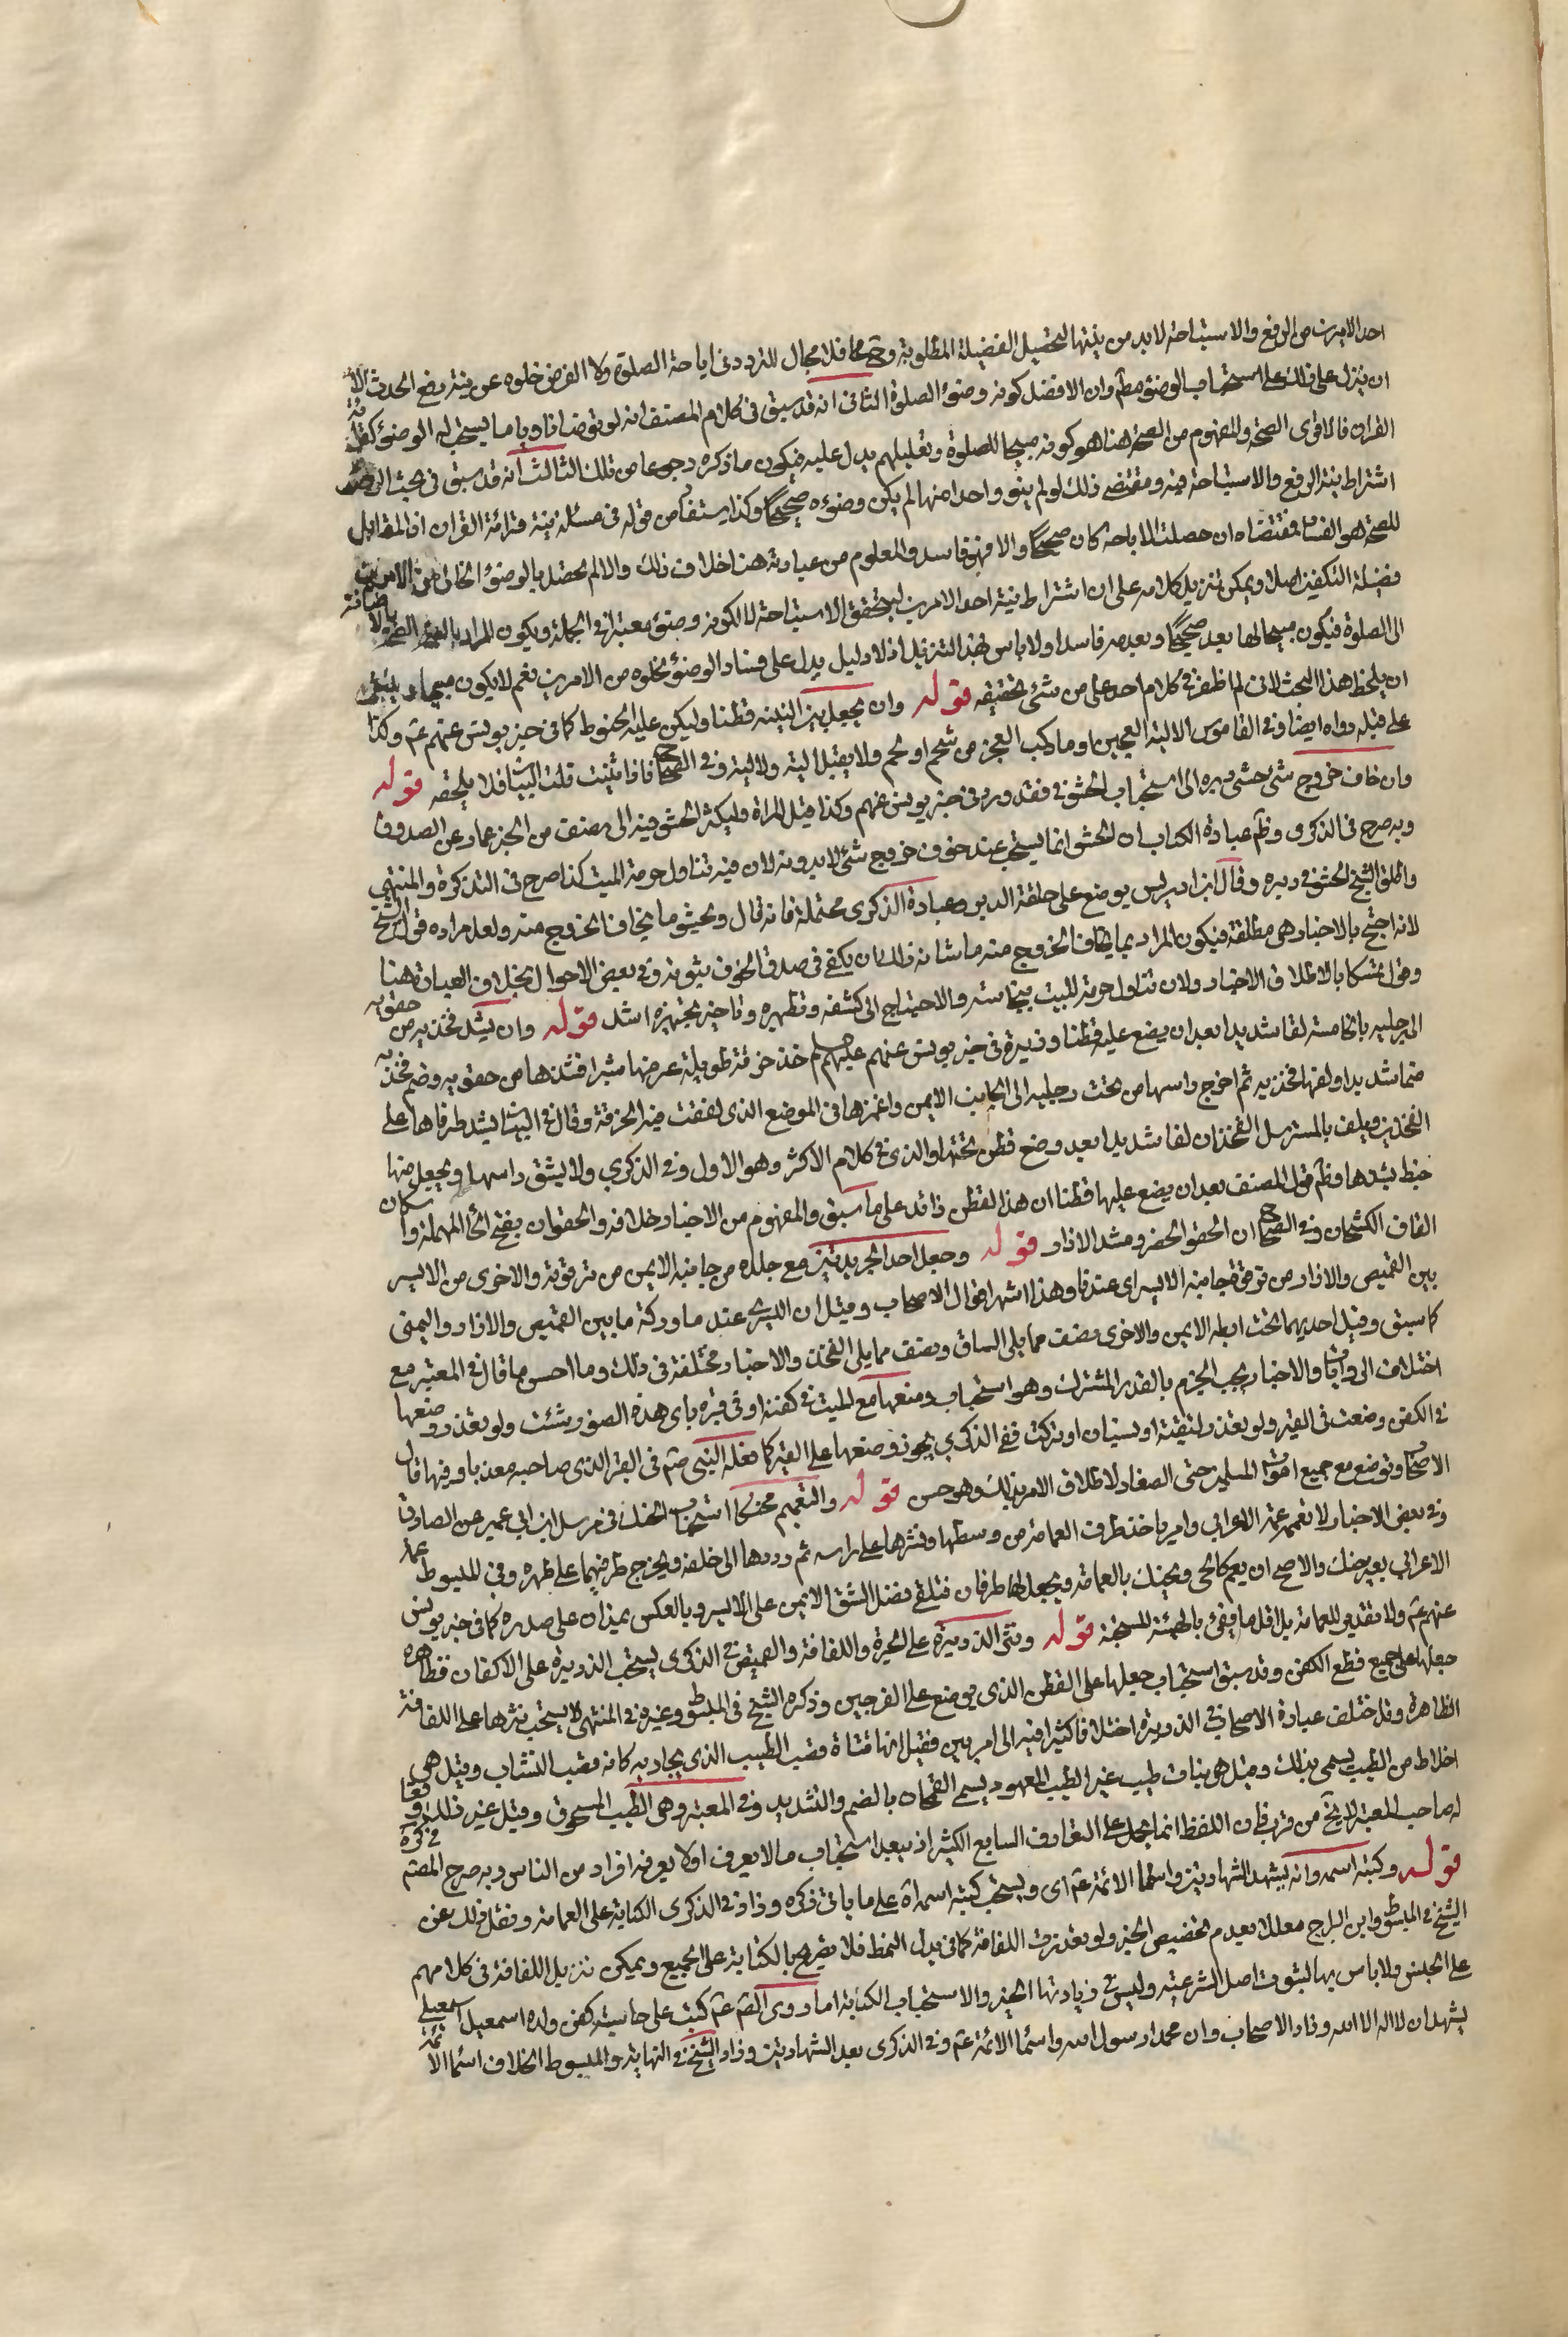 احد الامرين من الرفع والاستباحة لا بد من نيتها لتحصيل الفضيلة المطلوبة وح فلا مجال للتردد في اباحة الصلوة ولا الفرض خلوه عن نية رفع الحدث الا
ان ينزل على ذلك على استحباب الوضوء مطم وان الافضل كونه وضوء الصلوة الثاني انه قد سبق في كلام المصنف انه لو توضا ناويا ما يستحب له الوضوء كقرائة
القران فالاقوى الصحة والمفهوم من الصحة هنا هو كونه مبيحا للصلوة وتعليلهم يدل عليه فيكون ما ذكره رجوعا من تلك الثالث انه قد سبق في بحث الوضوء
اشتراط نية الرفع والاستباحة فيه ومقتضى ذلك لو لم ينو واحدا منها لم يكن وضوءه صحيحا وكذا يستفاد من قوله في مسئلة نية قرائة القران اذ المقابل
للصحة هو الفساد فمقتضاه ان حصلت الاباحة كان صحيحا والا فهو فاسد والمعلوم من عبارته هنا خلاف ذلك والا لم تحصل بالوضوء الخالى من الامرين
فضيلة التكفين اصلا ويمكن تنزيل كلامه على ان اشتراط نية احد الامرين ليتحقق الاستباحة لا لكونه وضوء معتبرا في الجملة ويكون المراد بالاضافة
الى الصلوة فيكون مبيحا لها بعد صحيحا وبعدمه فاسدا ولا باس بهذا التنزيل اذ لا دليل يدل على فساد الوضوء بخلوه من الامرين نعم لا يكون مبيحا وينبغى
ان يلحظ هذا البحث لانى لم اظفر في كلام احد على من شئ تحقيقه قوله وان يجعل بين اليتيه قطنا وليكن عليه الحنوط كما في خبر يونس عنهم عم وكذا
على قبله رواه ايضا وفي القاموس الالية العجيزة او ما ركب العجز من شحم او لحم ولا يقبل الية ولا لية وفي الصحاح فاذا ثنيت قلت اليان فلا يلحقه قوله
وان خاف خروج شئ حشى دبره اى استحباب الحشو فقد ورد في خبر يونس عنهم وكذا قبل المراة وليكثر الحشو فيه الى نصف من الخبر عمار عن الصدوق
وبه صرح في الذكرى وظم عبارة الكتاب ان الحشو انما يستحب عند خوف خروج شئ لا بدونه لان فيه تناول حرمة الميت كذا صرح في التذكرة والمنتهى
واطلق الشيخ الحشو في دبره وقال ابن ادريس يوضع على حلقة الدبر وعبارة الذكرى محتملة فانه قال ويحشو ما يخاف الخروج منه ولعل مراده قول الشيخ
لانه احتج بالاخبار وهى مطلقة فيكون المراد بما يخاف الخروج منه ما شانه ذلك ان يكفى في صدق الخوف ثبوته في بعض الاحوال بخلاف العبارة هنا
وقول تمسكا بالاطلاق الاخبار ولان تناول حرمة الميت بنجاسته والاحتياج الى كشفه وتطهيره وتاخير تجهيزه اشد قوله وان يشد فخذيه من حقويه
الى رجليه بالخامسة لفا شديدا بعد ان يضع عليه قطنا وذريرة في خبر يونس عنهم عليهم سلم خذ خرقة طويلة عرضها شبرا فشدها من حقويه وضم فخذيه
ضما شديدا ولفها فخذيه ثم اخرج راسها من تحت رجليه الى الجانب الايمن واغمزها في الموضع الذى لففت فيه الخرقة وقال في البيان يشد طرفاها على
الفخذين ويلف بالمسترسل الفخذان لفا شديدا بعد وضع قطن تحتها والذى في كلام الاكثر وهو الاول وفي الذكرى ولا يشق راسها ويجعل منها
خيط يشدها وظم قول المصنف بعد ان يضع عليها قطنا ان هذا القطن زائد على ما سبق والمفهوم من الاخبار خلافه والحقوان بفتح الحاء المهملة واسكان
القاف الكشحان وفي الصحاح ان الحقو الخصر ومشد الازار قوله وجعل احد الجريدتين مع جلده من جانبه الايمن من ترقوته والاخرى من الايسر
بين القميص والازار من ترقوة جانبه الايسر اى عندنا وهذا اشهر اقوال الاصحاب وقيل ان اليسرى عند ما وركه ما بين القميص والازار واليمنى
كما سبق وقيل احديهما تحت ابطه الايمن والاخرى نصف مما يلى الساق ونصف مما يلى الفخذ والاخبار مختلفة في ذلك وما احسن ما قال في المعتبر مع
اختلاف الروايات والاخبار يجب الجزم بالقدر المشترك وهو استحباب وضعها مع الميت في كفنه او في قبره باى هذه الصور شئت ولو تعذر وضعها
في الكفن وضعت في القبر ولو تعذر لتقية او نسيان او تركت ففي الذكرى يجوز وضعها على القبر كما فعله النبى صم في القبر الذى صاحبه معذبا وفيها قال
الاصحاب وتوضع مع جميع اموات المسلمين حتى الصغار لاطلاق الامر بذلك وهو حسن قوله والتعميم محنكا استحباب الحنك في مرسل ابن ابى عمير عن الصادق
وفي بعض الاخبار ولا تعممه عمة الاعرابى وامر باخذ طرف العمامة من وسطها ونشرها على راسه ثم رددها الى خلفه ويخرج طرفيهما على ظهره وفي المبسوط عمة
الاعرابى بغير حنك والاصح ان يعم كالحى ويحنك بالعمامة ويجعل لها طرفان فتلقى فضل الشق الايمن على الايسر وبالعكس يمدان على صدره كما في خبر يونس
عنهم عم ولا تقدير للعمامة بل اقل ما يفى بالهيئة المستحبة قوله ونثر الذريرة على الحبرة واللفافة والقميص في الذكرى يستحب الذريرة على الاكفان فظاهره
جعلها على جميع قطع الكفن وقد سبق استحباب جعلها على القطن الذى يوضع على الفرجين وذكره الشيخ في المبسوط وغيره في المنتهى لا يستحب نثرها على اللفافة
الظاهرة وقد اختلف عبارة الاصحاب في الذريرة اختلافا كثيرا فيه الى امر بين فقيل انها فتاة قصب الطيب الذى يجاء به كانه قصب النشاب وقيل هى
اخلاط من الطيب يسمى بذلك وقيل هى نبات طيب غير الطيب المعهود يسمى القمحان بالضم والتشديد وفي المعتبر وهى الطيب المسحوق وقيل غير ذلك
له صاحب المعتبر لا يخ من قرب فان اللفظ انما يحمل على التعارف الشايع الكثير اذ يبعد استحباب ما لا يعرف او لا يعرفه افراد من الناس وبه صرح المصم
قوله وكتبه اسمه وانه يشهد الشهادتين واسماء الائمة عم اى ويستحب كتبه اسماءه على ما ياتى ذكره وزاد في الذكرى الكتابة على العمامة ونقل ذلك عن
الشيخ في المبسوط وابن البراج معللا بعدم تخصيص الخبر ولو تعذرت اللفافة كما في بدل النمط فلا تصريح بالكتابة على الجميع ويمكن تنزيل اللفافة في كلامهم
على الجنس ولا باس بها لثبوت اصل الشرعية وليس في زيادتها الخبر والاستحباب الكتابة اما روى الصم عم كتب على حاشية كفن ولده اسمعيل اسمعيل
يشهد ان لا اله الا الله وزاد الاصحاب وان محمدا رسول الله واسماء الائمة عم وفي الذكرى بعد الشهادتين وزاد الشيخ في النهاية والمبسوط الخلاف اسماء الائمة